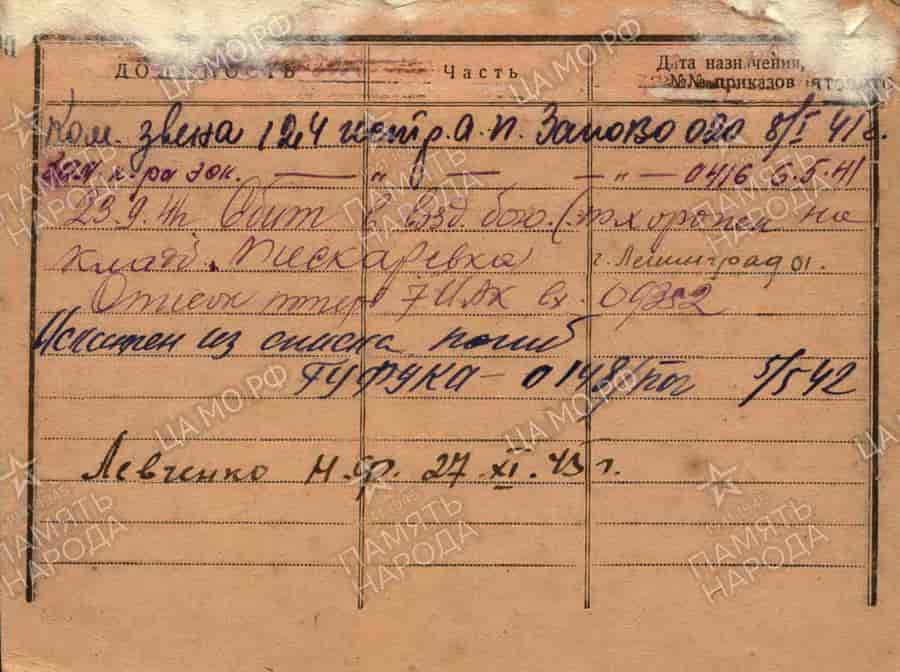 ДОЛЖНОСТЬ Часть Дата назначения, №№ приказов
Ком. звена 124 истр. а. п. ЗапОВО 020 8/I 41 г.
Зам. к-ра эск. — " — — " — 0416 6.5.41
23.9.41 Сбит в возд. бою. (похоронен на
кладб. Пискаревка г. Ленинград 01.
Список потерь 7 ИАК вх.
Исключен из списка погиб
ГУФУКА – 0148/пог 5/5 42
Левченко Н.Ф. 27.XI.43 г.
ЦАМО.РФ
ПАМЯТЬ НАРОДА